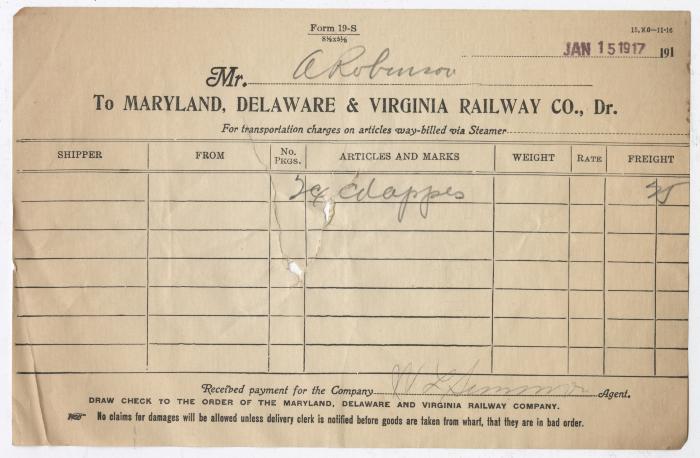 Form 19-S
8½x5½
15,XO-11-16
JAN 15 1917 191
Mr. A Robinson
To MARYLAND, DELAWARE & VIRGINIA RAILWAY CO., Dr.
For transportation charges on articles way-billed via Steamer
SHIPPER FROM No. Pkgs. ARTICLES AND MARKS WEIGHT RATE FREIGHT
25
Received payment for the Company W L Simmons Agent.
DRAW CHECK TO THE ORDER OF THE MARYLAND, DELAWARE AND VIRGINIA RAILWAY COMPANY.
No claims for damages will be allowed unless delivery clerk is notified before goods are taken from wharf, that they are in bad order.